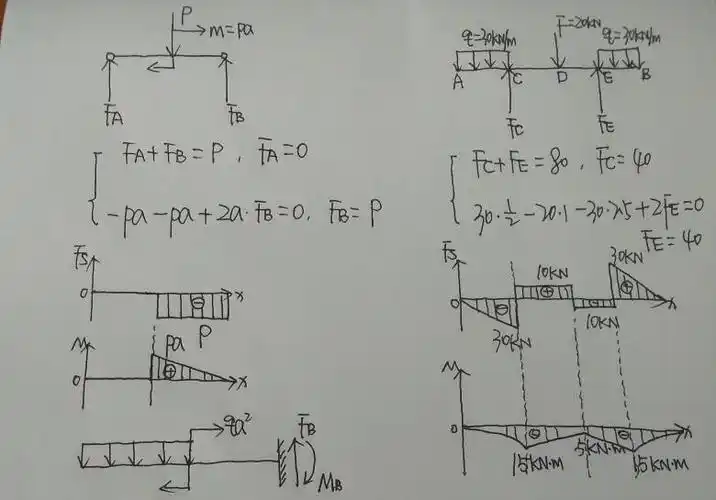 P
m=pa
FA
FB
FA+FB=P, FA=0
-pa-pa+2a·FB=0, FB=P
Fs
0
⊖
x
P
M
pa
0
⊕
x
qa²
FB
MB
F=20kN
q=30kN/m
q=30kN/m
A
C
D
E
B
FC
FE
FC+FE=80, FC=40
30·1/2-20·1-30·2.5+2FE=0
FE=40
Fs
30kN
10kN
0
⊖
⊕
⊕
x
30kN
10kN
M
0
⊖
⊖
x
15kN·m
5kN·m
15kN·m